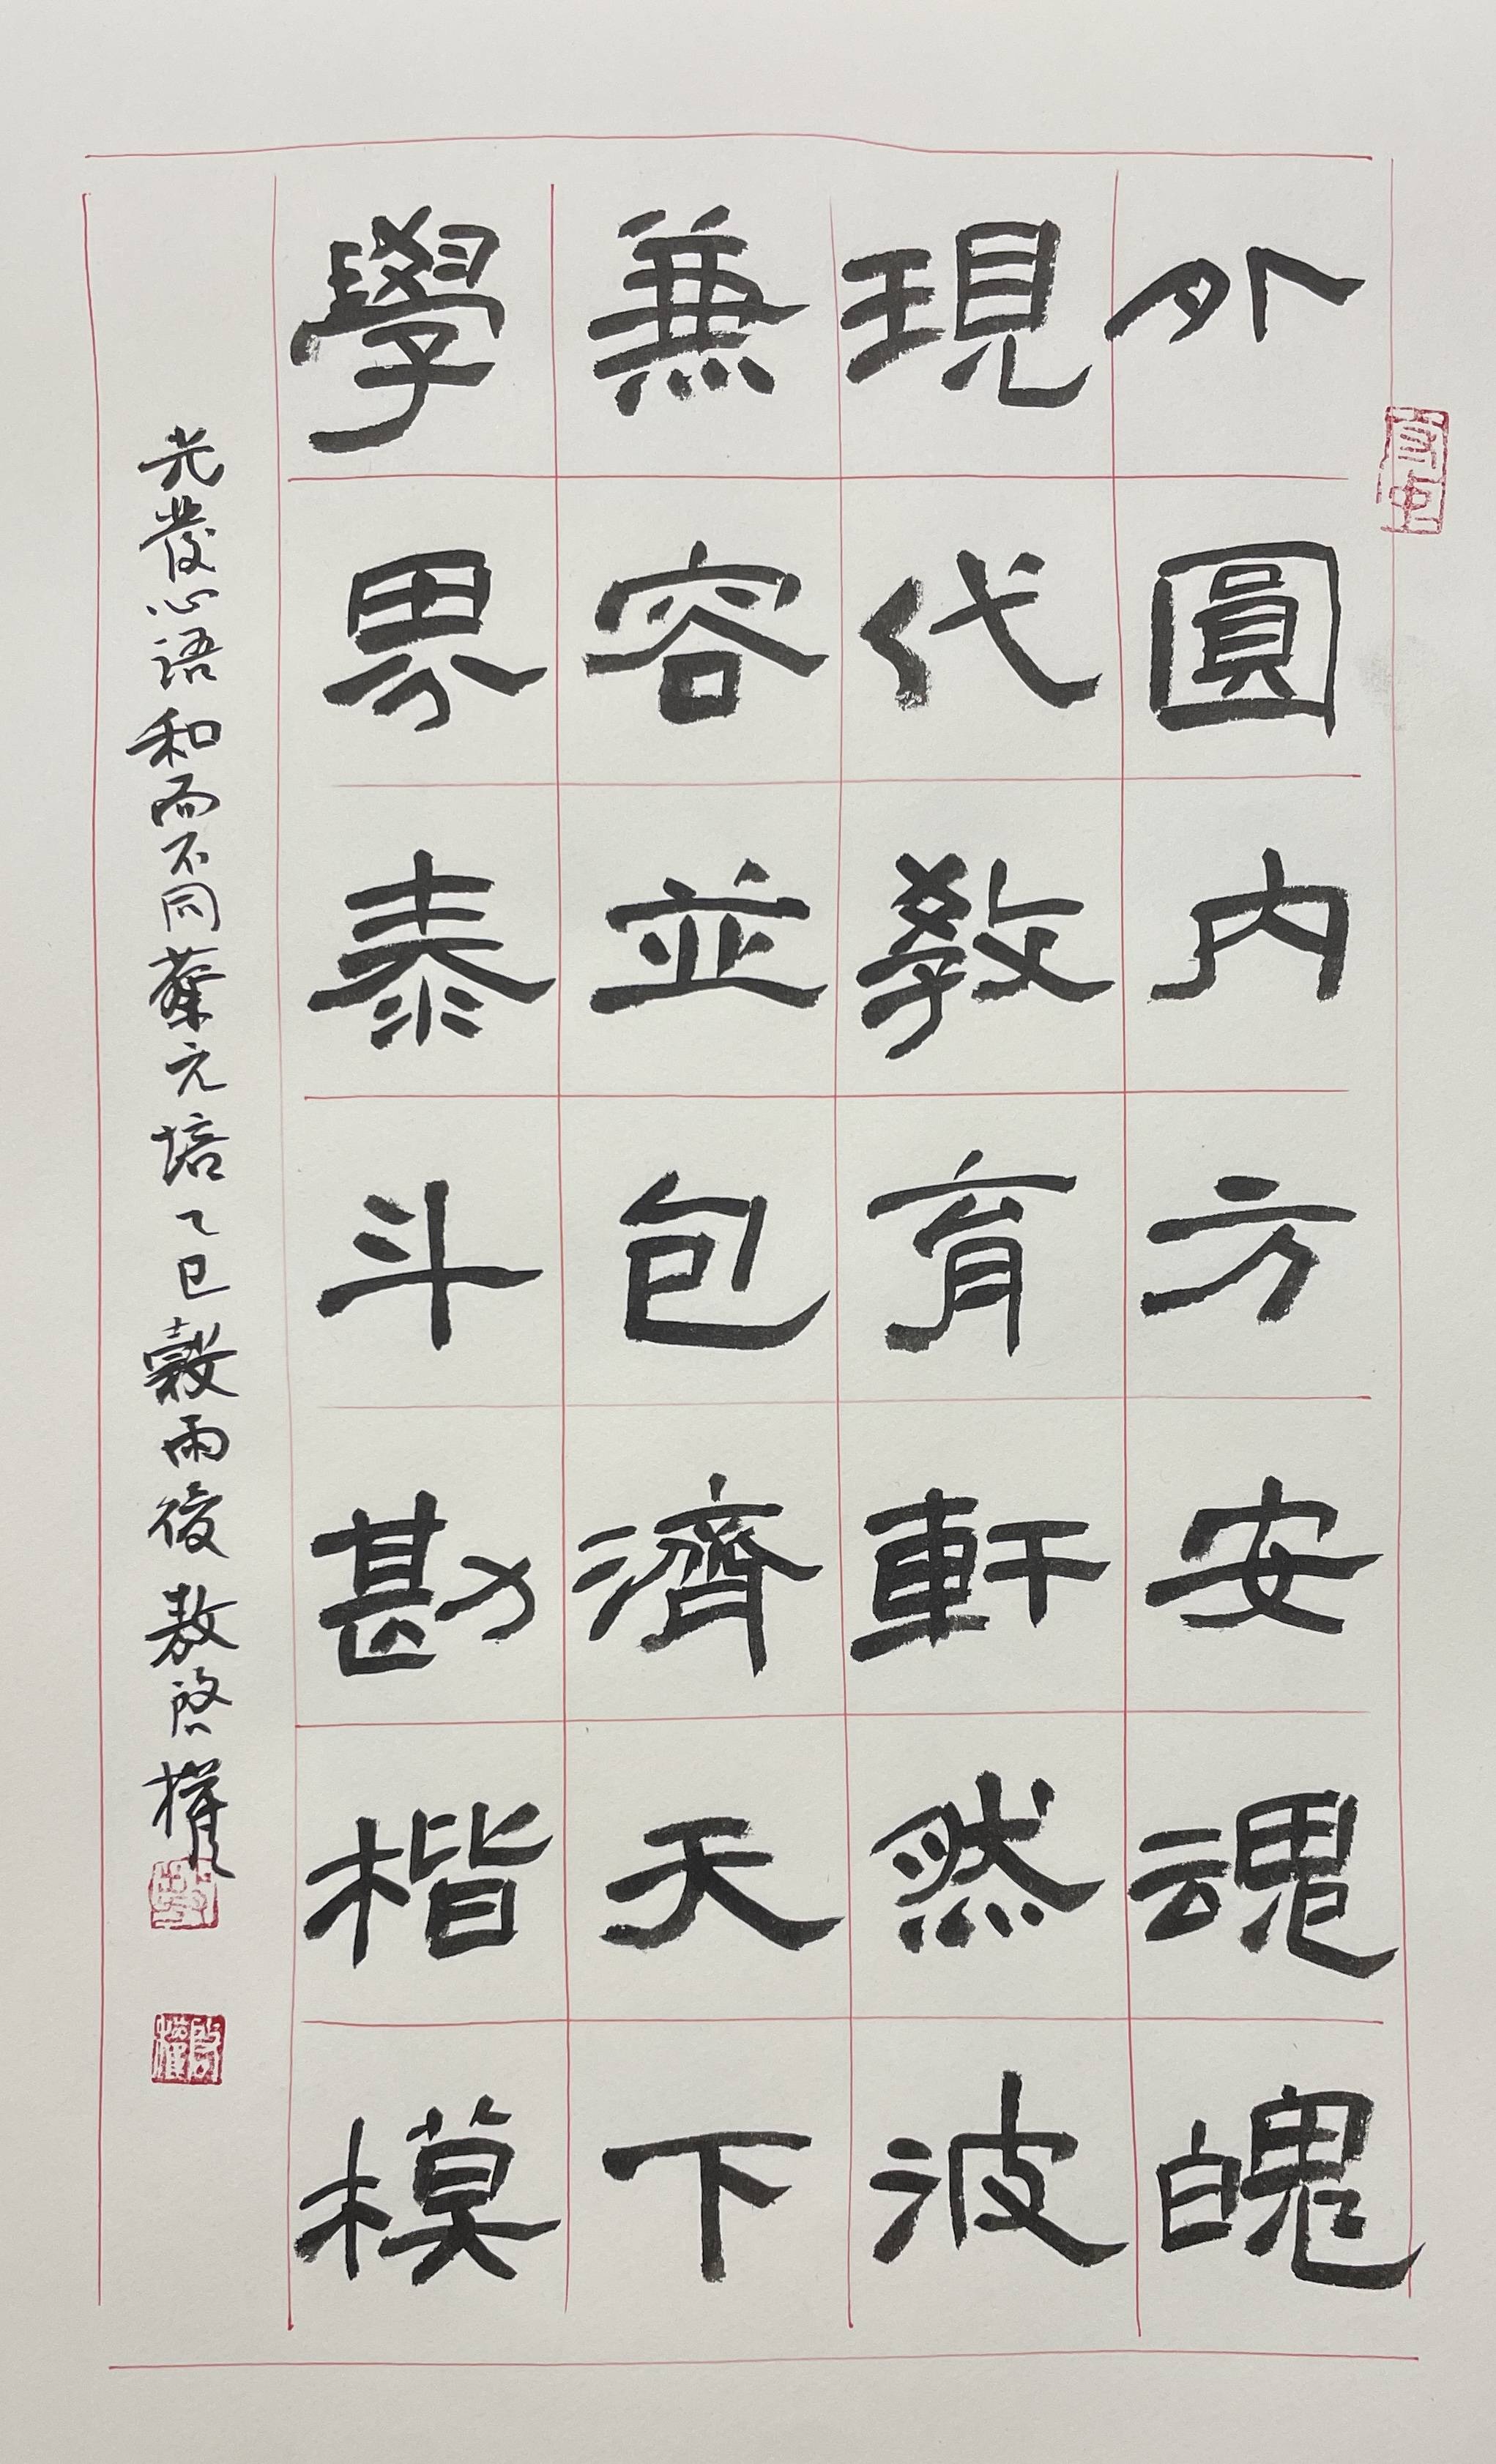 外圓内方安魂魄
現代教育軒然波
兼容並包濟天下
學界泰斗勘楷模
光發心語和而不同蔡元培乙巳穀雨後敖啓權
啓權